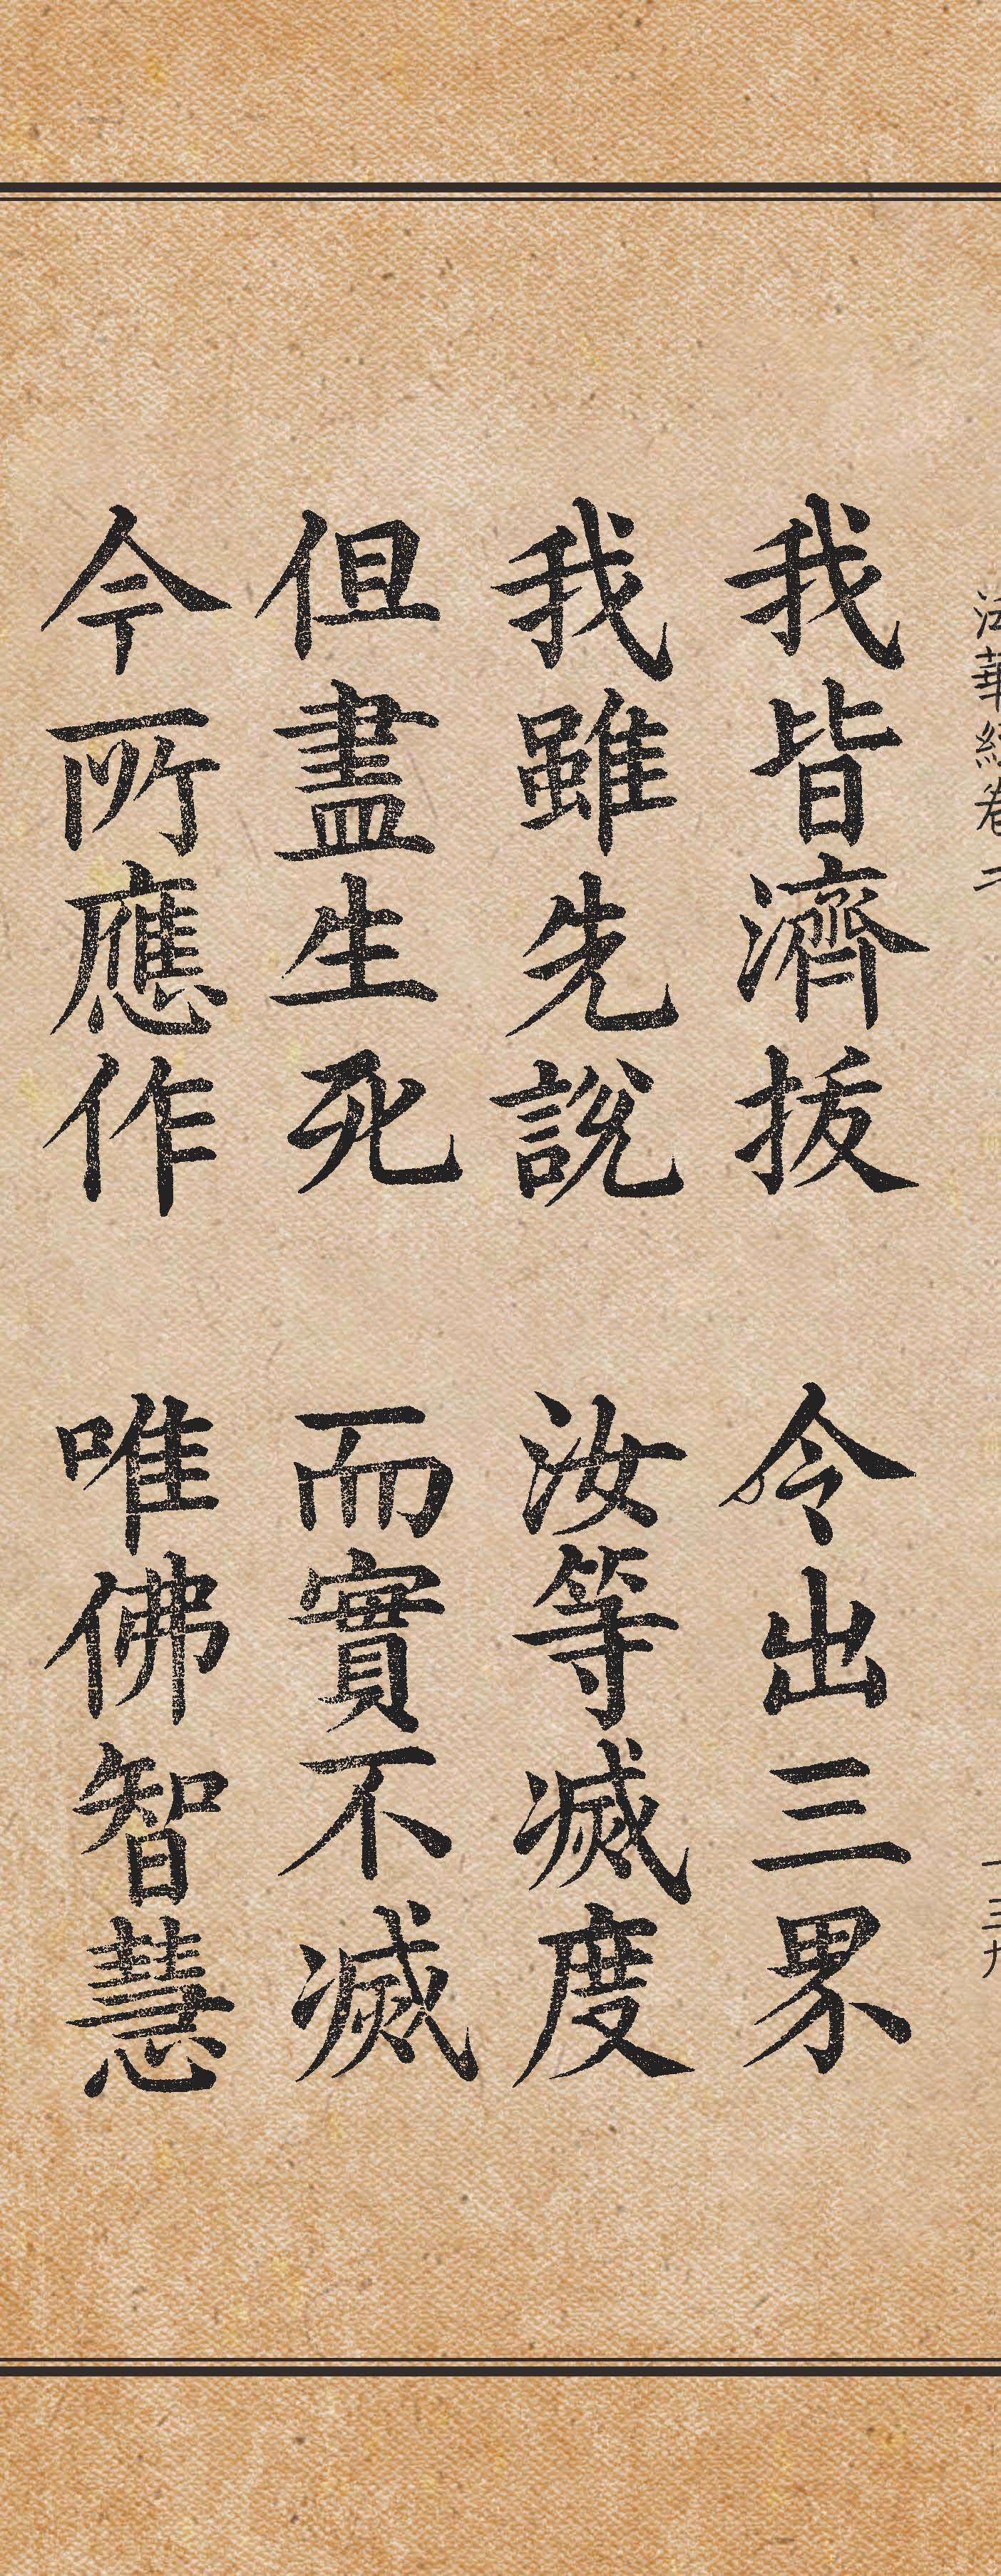 法華經卷二
我皆濟拔 令出三界
我雖先說 汝等滅度
但盡生死 而實不滅
今所應作 唯佛智慧